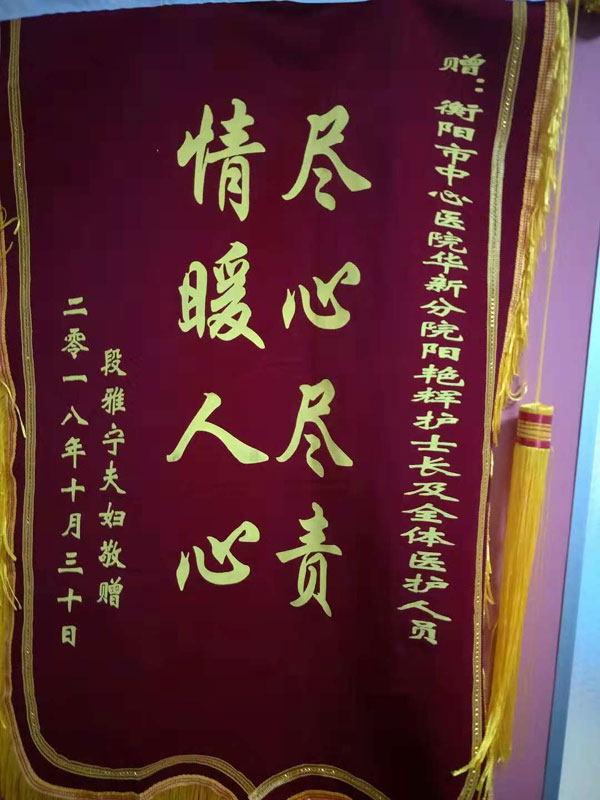 赠：衡阳市中心医院华新分院阳艳辉护士长及全体医护人员
尽心尽责
情暖人心
段雅宁夫妇敬赠
二零一八年十月三十日